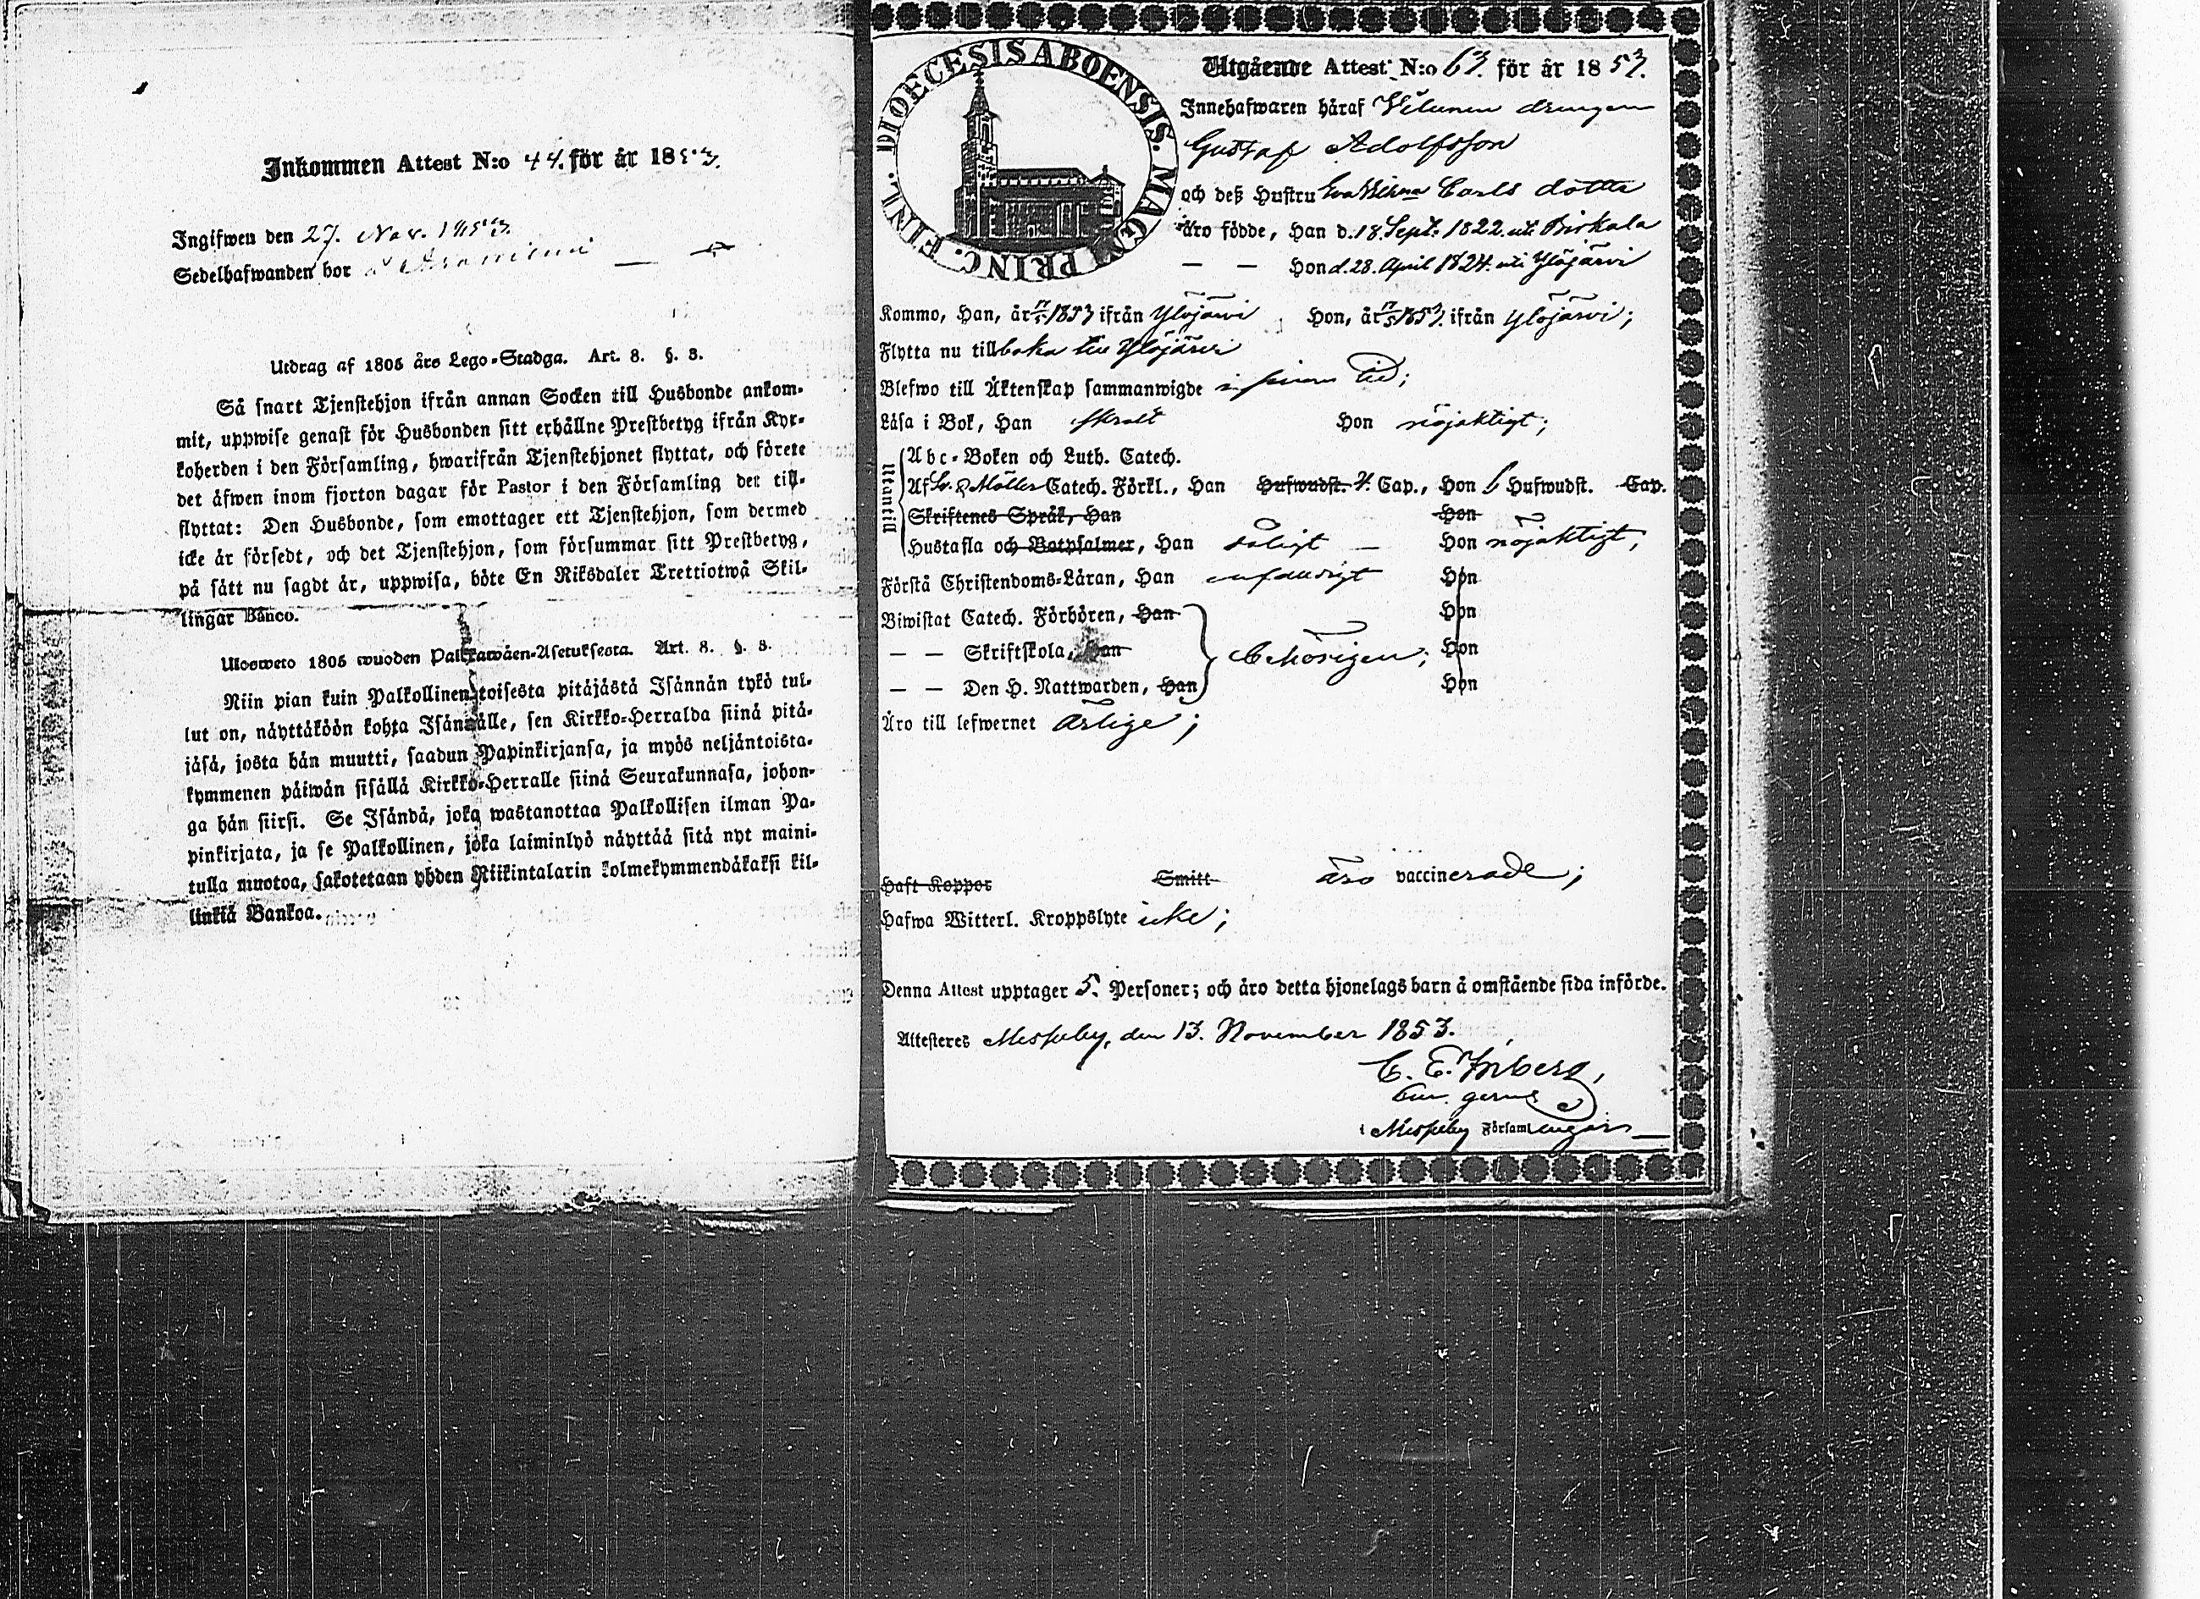 Inkommen Attest N:o 44. för år 1853.
Ingifwen den 27. Nov. 1853.
Sedelhafwanden bor
Utdrag af 1805 års Lego-Stadga. Art. 8. §. 3.
Så snart Tjenstehjon ifrån annan Socken till Husbonde ankom-
mit, uppwise genast för Husbonden sitt erhållne Prestbetyg ifrån Kyr-
koherden i den Församling, hwarifrån Tjenstehjonet flyttat, och förete
det äfwen inom fjorton dagar för Pastor i den Församling det till-
flyttat: Den Husbonde, som emottager ett Tjenstehjon, som dermed
icke är försedt, och det Tjenstehjon, som försummar sitt Prestbetyg,
på sätt nu sagdt är, uppwisa, böte En Riksdaler Trettiotwå Skil-
lingar Banco.
Ulosweto 1805 wuoden Palkkawäen-Asetuksesta. Art. 8. §. 3.
Niin pian kuin Palkollinen toisesta pitäjästä Isännän tykö tul-
lut on, näyttäköön kohta Isännälle, sen Kirkko-Herralda siinä pitä-
jäsä, josta hän muutti, saadun Papinkirjansa, ja myös neljäntoista-
kymmenen päiwän sisällä Kirkko-Herralle siinä Seurakunnasa, johon-
ga hän siirsi. Se Isändä, joka wastanottaa Palkollisen ilman Pa-
pinkirjata, ja se Palkollinen, joka laiminlyö näyttää sitä nyt maini-
tulla muotoa, sakotetaan yhden Riikintalarin kolmekymmendäkaksi kil-
linkiä Bankoa.
DIOECESIS ABOENSIS. MAGNI PRINC. FINL.
Utgående Attest N:o 63. för år 1853.
Innehafwaren häraf drengen
Gustaf Adolfsson
och deß Hustru Eva Carls dotter
äro födde, Han d. 18. Sept. 1822. uti Birkala
— — Hon d. 28. April 1824. uti Ylöjärvi
Kommo, Han, år 1853 ifrån Ylöjärvi Hon, år 1853. ifrån Ylöjärvi;
Flytta nu tillbaka till Ylöjärvi
Blefwo till Äktenskap sammanwigde i sinom tid;
Läsa i Bok, Han skralt Hon nöjaktigt;
Utantill
Abc-Boken och Luth. Catech.
Af Möllers Catech. Förkl., Han Hufwudst. 4. Cap., Hon 6 Hufwudst. Cap.
Skriftenes Språk, Han Hon
Hustafla och Botpsalmer, Han dåligt — Hon nöjaktigt,
Förstå Christendoms-Läran, Han enfaldigt Hon
Biwistat Catech. Förhören, Han Hon
— — Skriftskola, Han behörigen; Hon
— — Den H. Nattwarden, Han Hon
Äro till lefwernet ärlige;
Haft Koppor Smitt äro vaccinerade;
Hafwa Witterl. Kroppslyte icke;
Denna Attest upptager 5. Personer; och äro detta hjonelags barn å omstående sida införde.
Attesteres Messuby, den 13. November 1853.
C. E.
Cur. gerens
i Messuby Församlingar